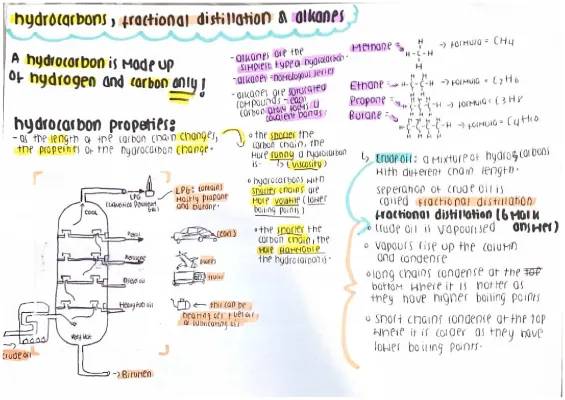 hydrocarbons, fractional distillation & alkanes
A hydrocarbon is made up
of hydrogen and carbon only!
hydrocarbon propeties:
- as the length of the carbon chain changes,
the propeties of the hydrocarbon change.
- alkanes are the
simplest type of hydrocarbon.
- alkanes = homologous series
- alkanes are saturated
compounds - each
carbon atom forms 4
covalent bonds.
o the shorter the
carbon chain, the
more runny a hydrocarbon
is. (viscosity)
o hydrocarbons with
shorter chains are
more volatile (lower
boiling points)
o the shorter the
carbon chain, the
more flammable
the hydrocarbon is.
Methane = → formula = CH4
Ethane = → formula = C2H6
Propane = → formula = C3H8
Butane = → formula = C4H10
crude oil: a mixture of hydrocarbons
with different chain length.
seperation of crude oil is
called fractional distillation
fractional distillation (6 mark
answer)
o crude oil is vapourised
o vapours rise up the column
and condense
o long chains condense at the top
bottom where it is hotter as
they have higher boiling points
o short chains condense at the top
where it is cooler as they have
lower boiling points.
LPG
(Liquefied Petroleum
Gas)
COOL
LPG: contains
mainly propane
and butane.
Petrol
(cars)
Diesel oil
Heavy fuel oil
this can be
heating oil, fuel oil
or lubricating oil
Very Hot
crude oil
→ Bitumen